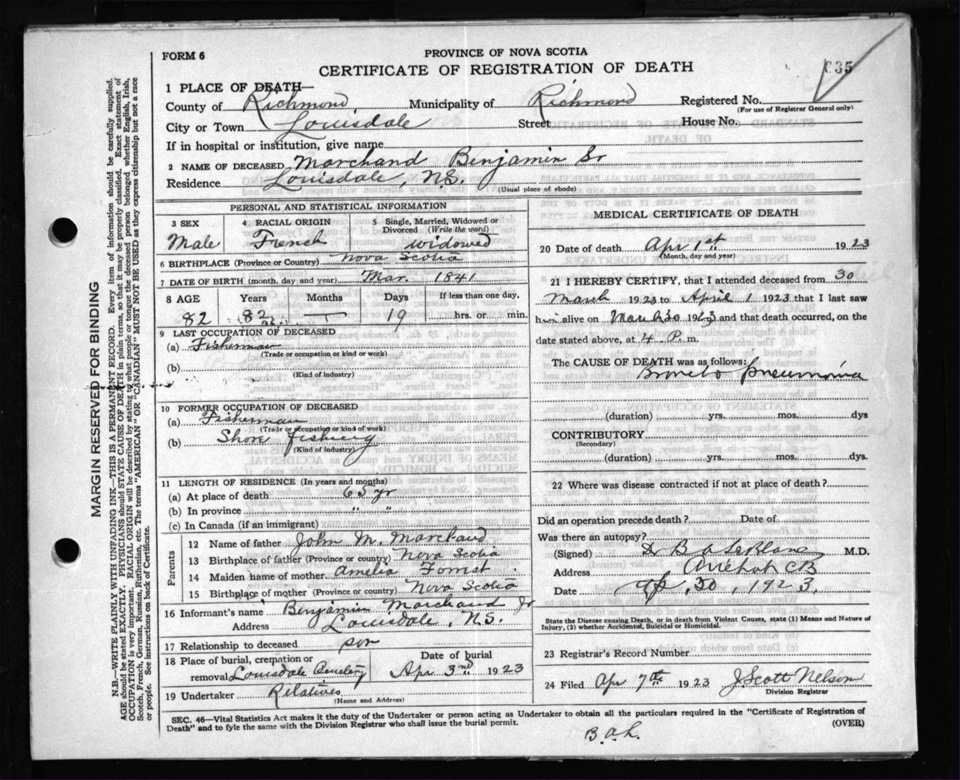 FORM 6
PROVINCE OF NOVA SCOTIA
CERTIFICATE OF REGISTRATION OF DEATH
1 PLACE OF DEATH—
County of Richmond Municipality of Richmond Registered No.
(For use of Registrar General only)
City or Town Louisdale Street House No.
If in hospital or institution, give name
2 NAME OF DECEASED Marchand Benjamin Sr
Residence Louisdale N.S.
(Usual place of abode)
PERSONAL AND STATISTICAL INFORMATION
3 SEX 4 RACIAL ORIGIN 5 Single, Married, Widowed or Divorced (Write the word)
Male French widowed
6 BIRTHPLACE (Province or Country) Nova Scotia
7 DATE OF BIRTH (month, day and year) Mar. 1841
8 AGE Years Months Days If less than one day,
82 82 — 19 hrs. or min.
9 LAST OCCUPATION OF DECEASED
(a) Fisherman
(Trade or occupation or kind or work)
(b)
(Kind of industry)
10 FORMER OCCUPATION OF DECEASED
(a) Fisherman
(Trade or occupation or kind or work)
(b) Shore fishery
(Kind of industry)
11 LENGTH OF RESIDENCE (In years and months)
(a) At place of death 65 yr
(b) In province " "
(c) In Canada (if an immigrant)
Parents
12 Name of father John M. Marchand
13 Birthplace of father (Province or country) Nova Scotia
14 Maiden name of mother Amelia Forrest
15 Birthplace of mother (Province or country) Nova Scotia
16 Informant's name Benjamin Marchand Jr
Address Louisdale, N.S.
17 Relationship to deceased son
18 Place of burial, cremation or removal Louisdale Cemetery Date of burial Apr 3rd 1923
19 Undertaker Relatives
(Name and Address)
MEDICAL CERTIFICATE OF DEATH
20 Date of death Apr 1st 1923
(Month, day and year)
21 I HEREBY CERTIFY, that I attended deceased from 30
March 1923 to April 1 1923 that I last saw
him alive on March 30 1923 and that death occurred, on
date stated above, at 4 P. m.
The CAUSE OF DEATH was as follows:
Broncho pneumonia
(duration) yrs. mos. dys
CONTRIBUTORY
(Secondary)
(duration) yrs. mos. dys.
22 Where was disease contracted if not at place of death?
Did an operation precede death? Date of
Was there an autopsy?
(Signed) B A LeBlanc M.D.
Address Arichat CB
Date 1923
State the Disease causing Death, or in death from Violent Causes, state (1) Means and Nature of Injury, (2) whether Accidental, Suicidal or Homicidal.
23 Registrar's Record Number
24 Filed Apr 7th 1923 J. Scott Nelson
Division Registrar
SEC. 46—Vital Statistics Act makes it the duty of the Undertaker or person acting as Undertaker to obtain all the particulars required in the "Certificate of Registration of
Death" and to fyle the same with the Division Registrar who shall issue the burial permit.
(OVER)
B.a.L.
MARGIN RESERVED FOR BINDING
N.B.—WRITE PLAINLY WITH UNFADING INK—THIS IS A PERMANENT RECORD. Every item of information should be carefully supplied.
AGE should be stated EXACTLY. PHYSICIANS should STATE CAUSE OF DEATH in plain terms, so that it may be properly classified. Exact statement of
OCCUPATION is very important. RACIAL ORIGIN will be described by stating to what people or tongue the deceased person belonged whether English, Irish,
Scotch, French, German, Russian, Ruthenian, etc. The terms "AMERICAN" OR "CANADIAN" MUST NOT BE USED as they express citizenship but not a race
or people. See instructions on back of Certificate.